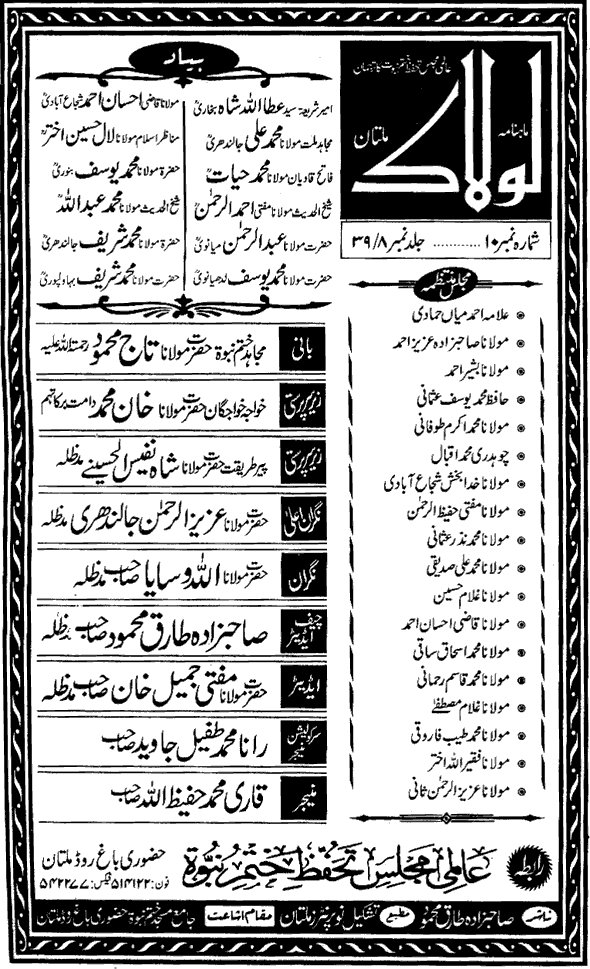 عالمی مجلس تحفظ ختم نبوت کا ترجمان
ماہنامہ
لولاک
ملتان
شمارہ نمبر ۱۰ ............ جلد نمبر ۳۹/۸
بیاد
امیر شریعت سید عطا اللہ شاہ بخاریؒ
مولانا قاضی احسان احمد شجاع آبادیؒ
مجاہد ملت مولانا محمد علی جالندھریؒ
مناظر اسلام مولانا لال حسین اخترؒ
فاتح قادیان مولانا محمد حیاتؒ
حضرۃ مولانا محمد یوسف بنوریؒ
شیخ الحدیث مولانا مفتی احمد الرحمنؒ
شیخ الحدیث مولانا محمد عبد اللہؒ
حضرت مولانا عبد الرحمٰن میانویؒ
حضرۃ مولانا محمد شریف جالندھریؒ
حضرت مولانا محمد یوسف لدھیانویؒ
حضرت مولانا محمد شریف بہاولپوریؒ
مجلس منتظمہ
علامہ احمد میاں حمادی
مولانا صاحبزادہ عزیز احمد
مولانا بشیر احمد
حافظ محمد یوسف عثمانی
مولانا محمد اکرم طوفانی
چوہدری محمد اقبال
مولانا خدا بخش شجاع آبادی
مولانا مفتی حفیظ الرحمٰن
مولانا محمد نذر عثمانی
مولانا محمد علی صدیقی
مولانا غلام حسین
مولانا قاضی احسان احمد
مولانا محمد اسحاق ساقی
مولانا محمد قاسم رحمانی
مولانا غلام مصطفےٰ
مولانا محمد طیب فاروقی
مولانا فقیر اللہ اختر
مولانا عزیز الرحمٰن ثانی
بانی مجاہد ختم نبوۃ حضرت مولانا تاج محمود رحمۃ اللہ علیہ
زیر سرپرستی خواجہ خواجگان حضرت مولانا خان محمد دامت برکاتہم
زیر سرپرستی پیر طریقت حضرت مولانا شاہ نفیس الحسینی مدظلہ
نگران اعلیٰ حضرت مولانا عزیز الرحمٰن جالندھری مدظلہ
نگران حضرت مولانا اللہ وسایا صاحب مدظلہ
چیف ایڈیٹر صاحبزادہ طارق محمود صاحب مدظلہ
ایڈیٹر حضرت مولانا مفتی جمیل خان صاحب مدظلہ
سرکولیشن منیجر رانا محمد طفیل جاوید صاحب
منیجر قاری محمد حفیظ اللہ صاحب
رابطہ
عالمی مجلس تحفظ ختم نبوۃ
حضوری باغ روڈ ملتان
فون: ۵۱۴۱۲۲ فیکس: ۵۴۲۲۷۷
ناشر صاحبزادہ طارق محمود مطبع تشکیل نو پرنٹرز ملتان مقام اشاعت جامع مسجد ختم نبوۃ حضوری باغ روڈ ملتان